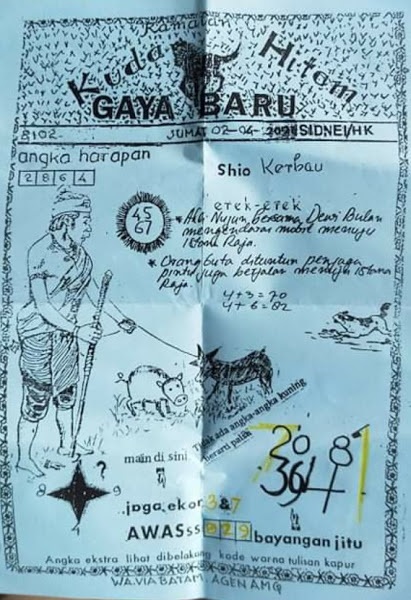 Ramalan
Kuda Hitam
GAYA BARU
B102- JUMAT 02-04-2021 SIDNEI/HK
angka harapan
2864
Shio Kerbau
45
67
erek-erek
* Ahli Nujum bersama Dewi Bulan
mengendarai mobil menuju
Istana Raja.
* Orang buta dituntun penjaga
pintu juga berjalan menuju Istana
Raja.
4+3=70
4+6=82
Tidak ada angka-angka kuning
berarti palsu
main di sini
7 20 8 1
364
?
8 9
jaga ekor 3&7
AWASss 929 bayangan jitu
Angka ekstra lihat dibelakang kode warna tulisan kapur
WA.VIA BATAM, AGEN AMG